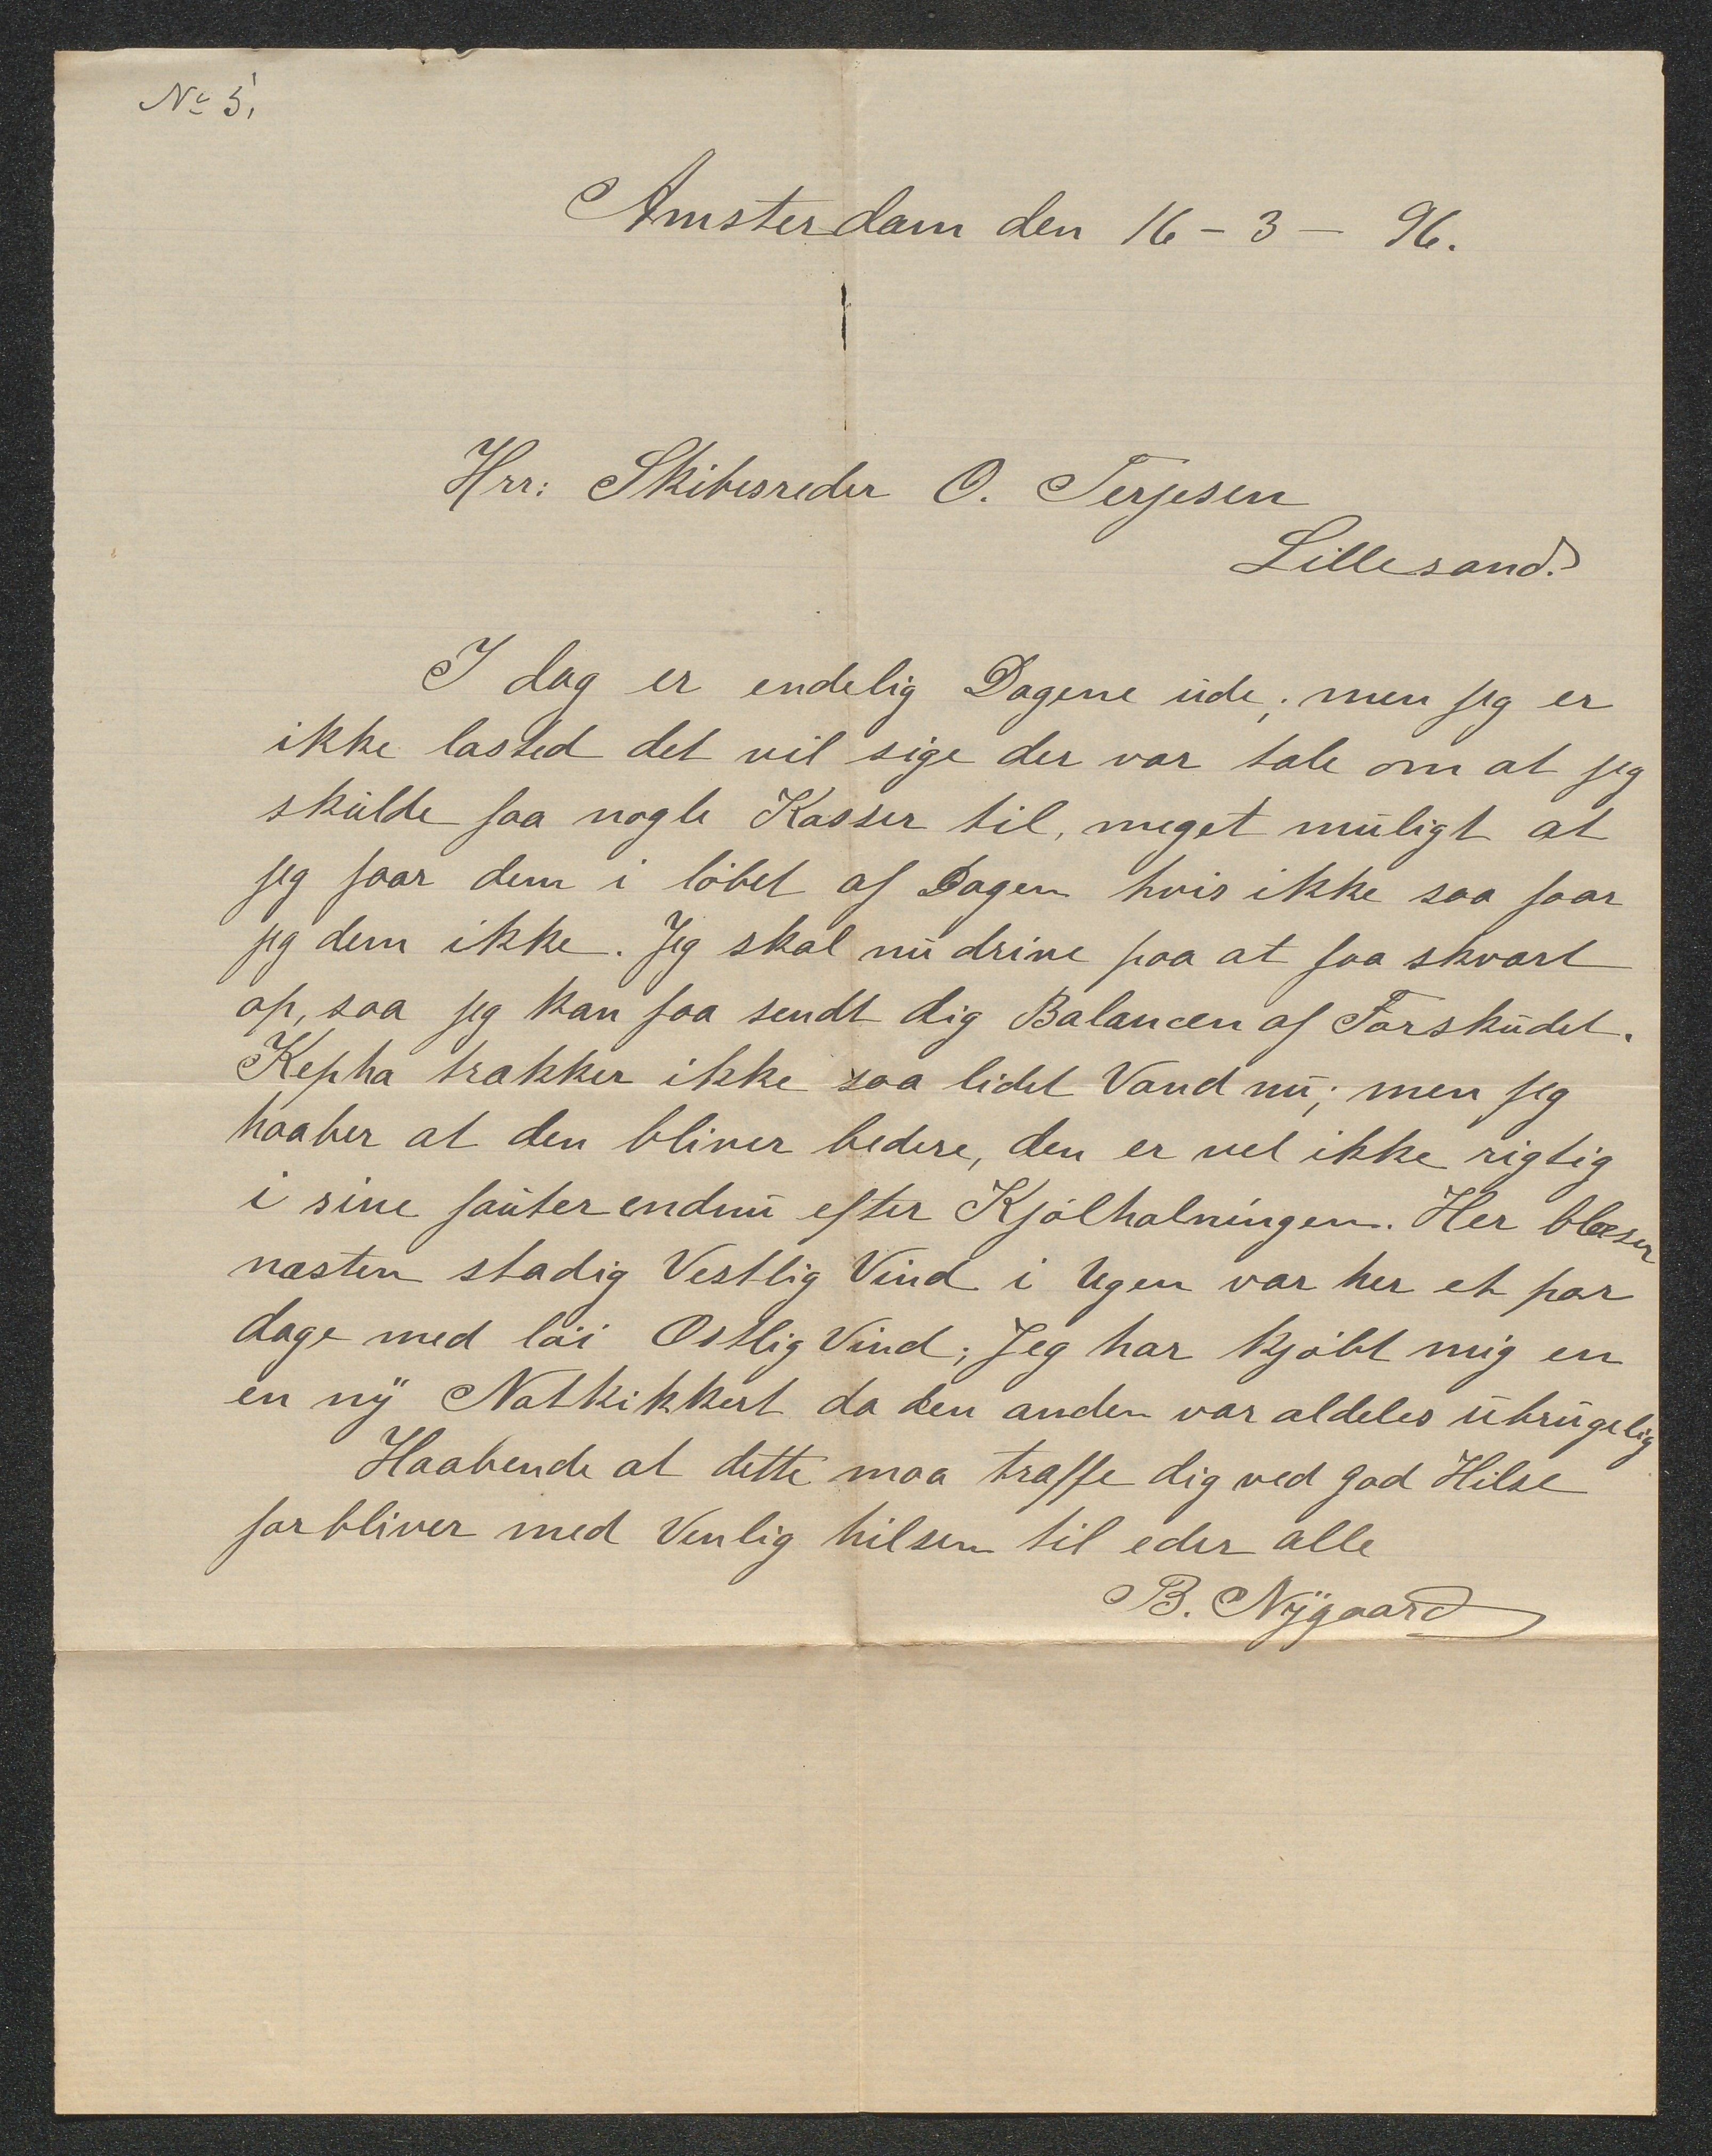 No 5.
Amsterdam den 16 - 3 - 96.
Hrr: Skibesreder O. Terjesen
Lillesand.
I dag er endelig Dagene ude; men jeg er
ikke lasted det vil sige der var tale om at jeg
skulde faa nogle Kasser til, meget muligt at
jeg faar dem i löbet af Dagen hvis ikke saa faar
jeg dem ikke. Jeg skal nu drive paa at faa skvart
op, saa jeg kan faa sendt dig Balancen af Forskudet.
Kepha trækker ikke saa lidet Vand nu; men jeg
haaber at den bliver bedere, den er vel ikke rigtig
i sine fauter endnu efter Kjölhalningen. Her blæser
næsten stadig Vestlig Vind i Ugen var her et par
dage med löi Ostlig Vind; Jeg har kjöbt mig en
en ny Natkikkert da den anden var aldeles ubrugelig
Haabende at dette maa træffe dig ved god Hilse
forbliver med Venlig hilsen til eder alle
B. Nygaard